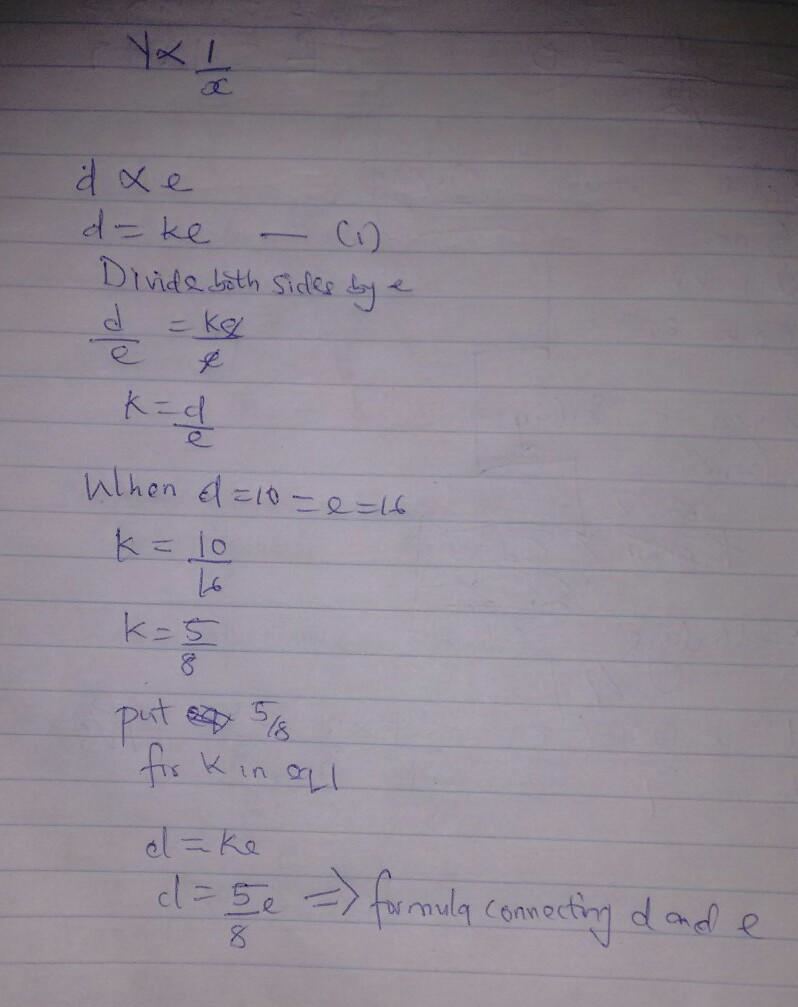 Y ∝ 1/x
d ∝ e
d = ke — (1)
Divide both sides by e
d/e = ke/e
K = d/e
When d=10 = e=16
K = 10/16
K = 5/8
put 5/8
for K in eq 1
d = ke
d = 5/8 e ⇒ formula connecting d and e